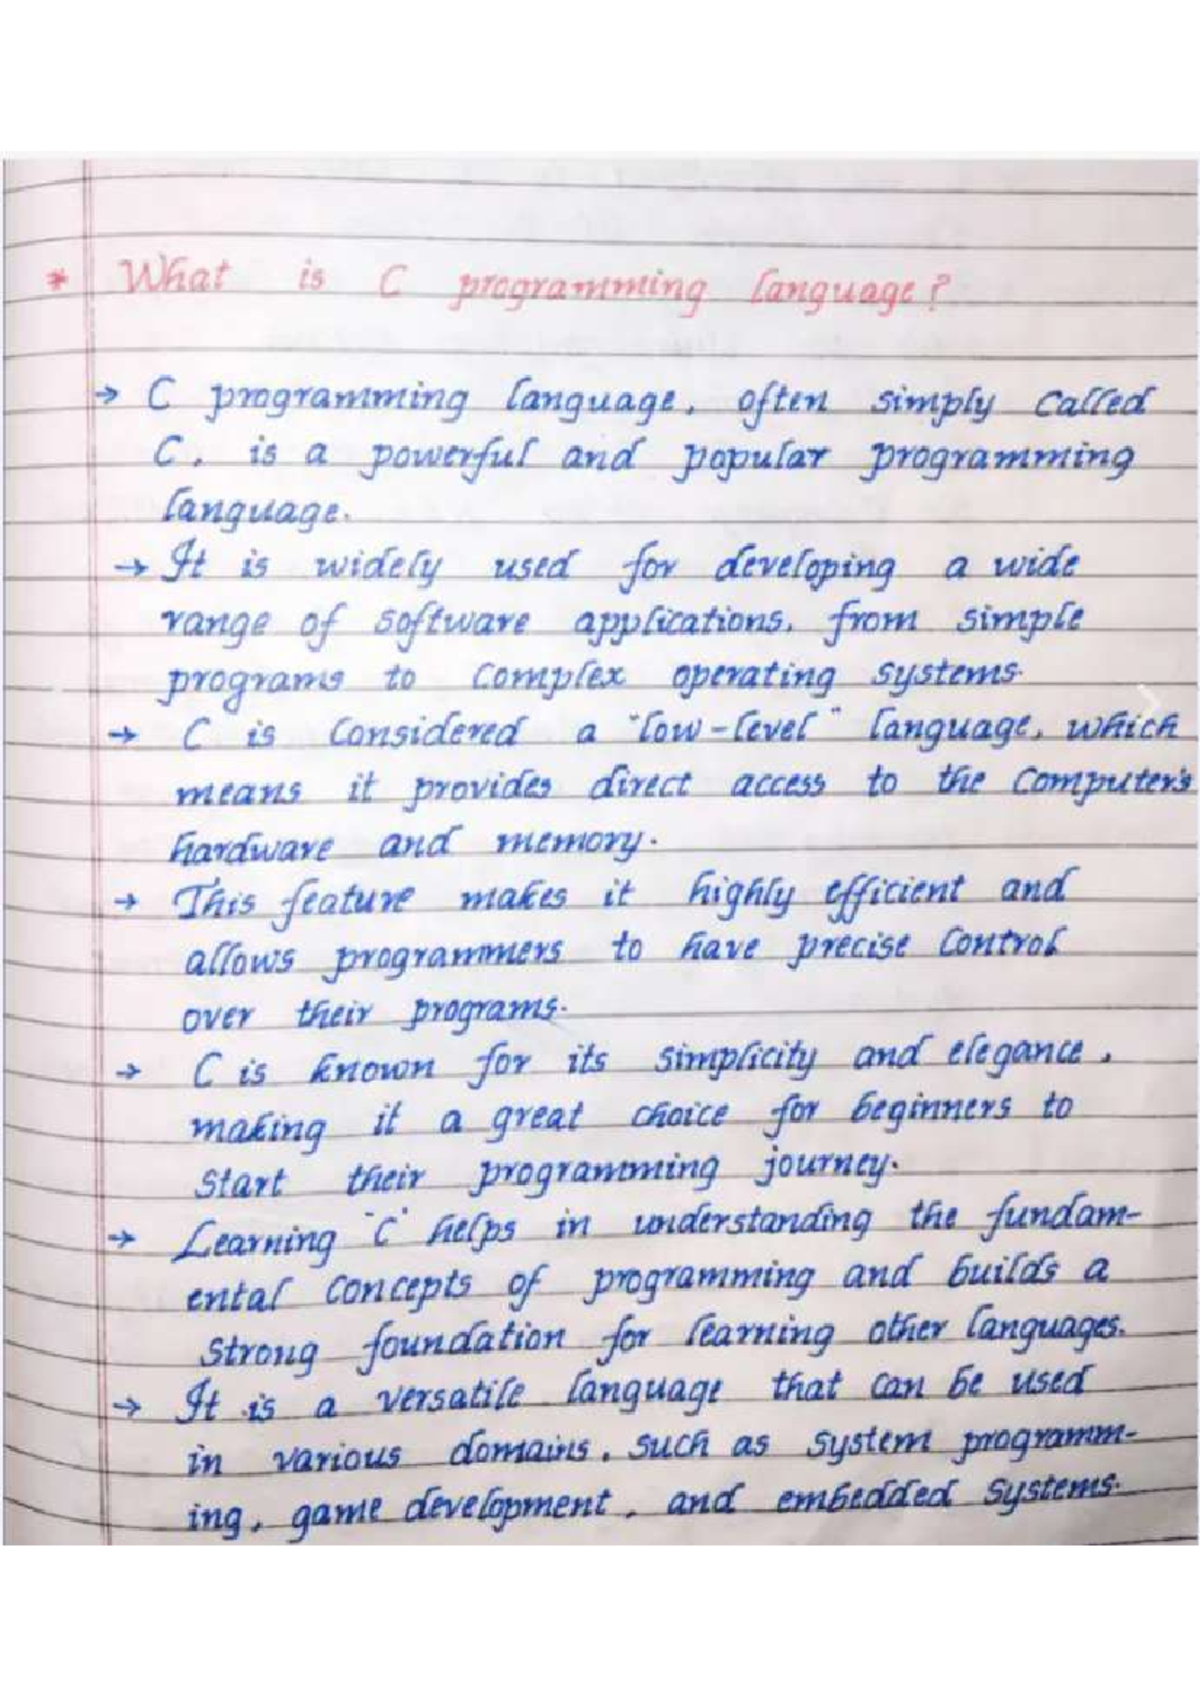 * What is C programming language?
→ C programming language, often simply called
C, is a powerful and popular programming
language.
→ It is widely used for developing a wide
range of software applications, from simple
programs to complex operating systems.
→ C is considered a "low-level" language, which
means it provides direct access to the computer's
hardware and memory.
→ This feature makes it highly efficient and
allows programmers to have precise control
over their programs.
→ C is known for its simplicity and elegance,
making it a great choice for beginners to
start their programming journey.
→ Learning "C" helps in understanding the fundam-
ental concepts of programming and builds a
strong foundation for learning other languages.
→ It is a versatile language that can be used
in various domains, such as system programm-
ing, game development, and embedded systems.